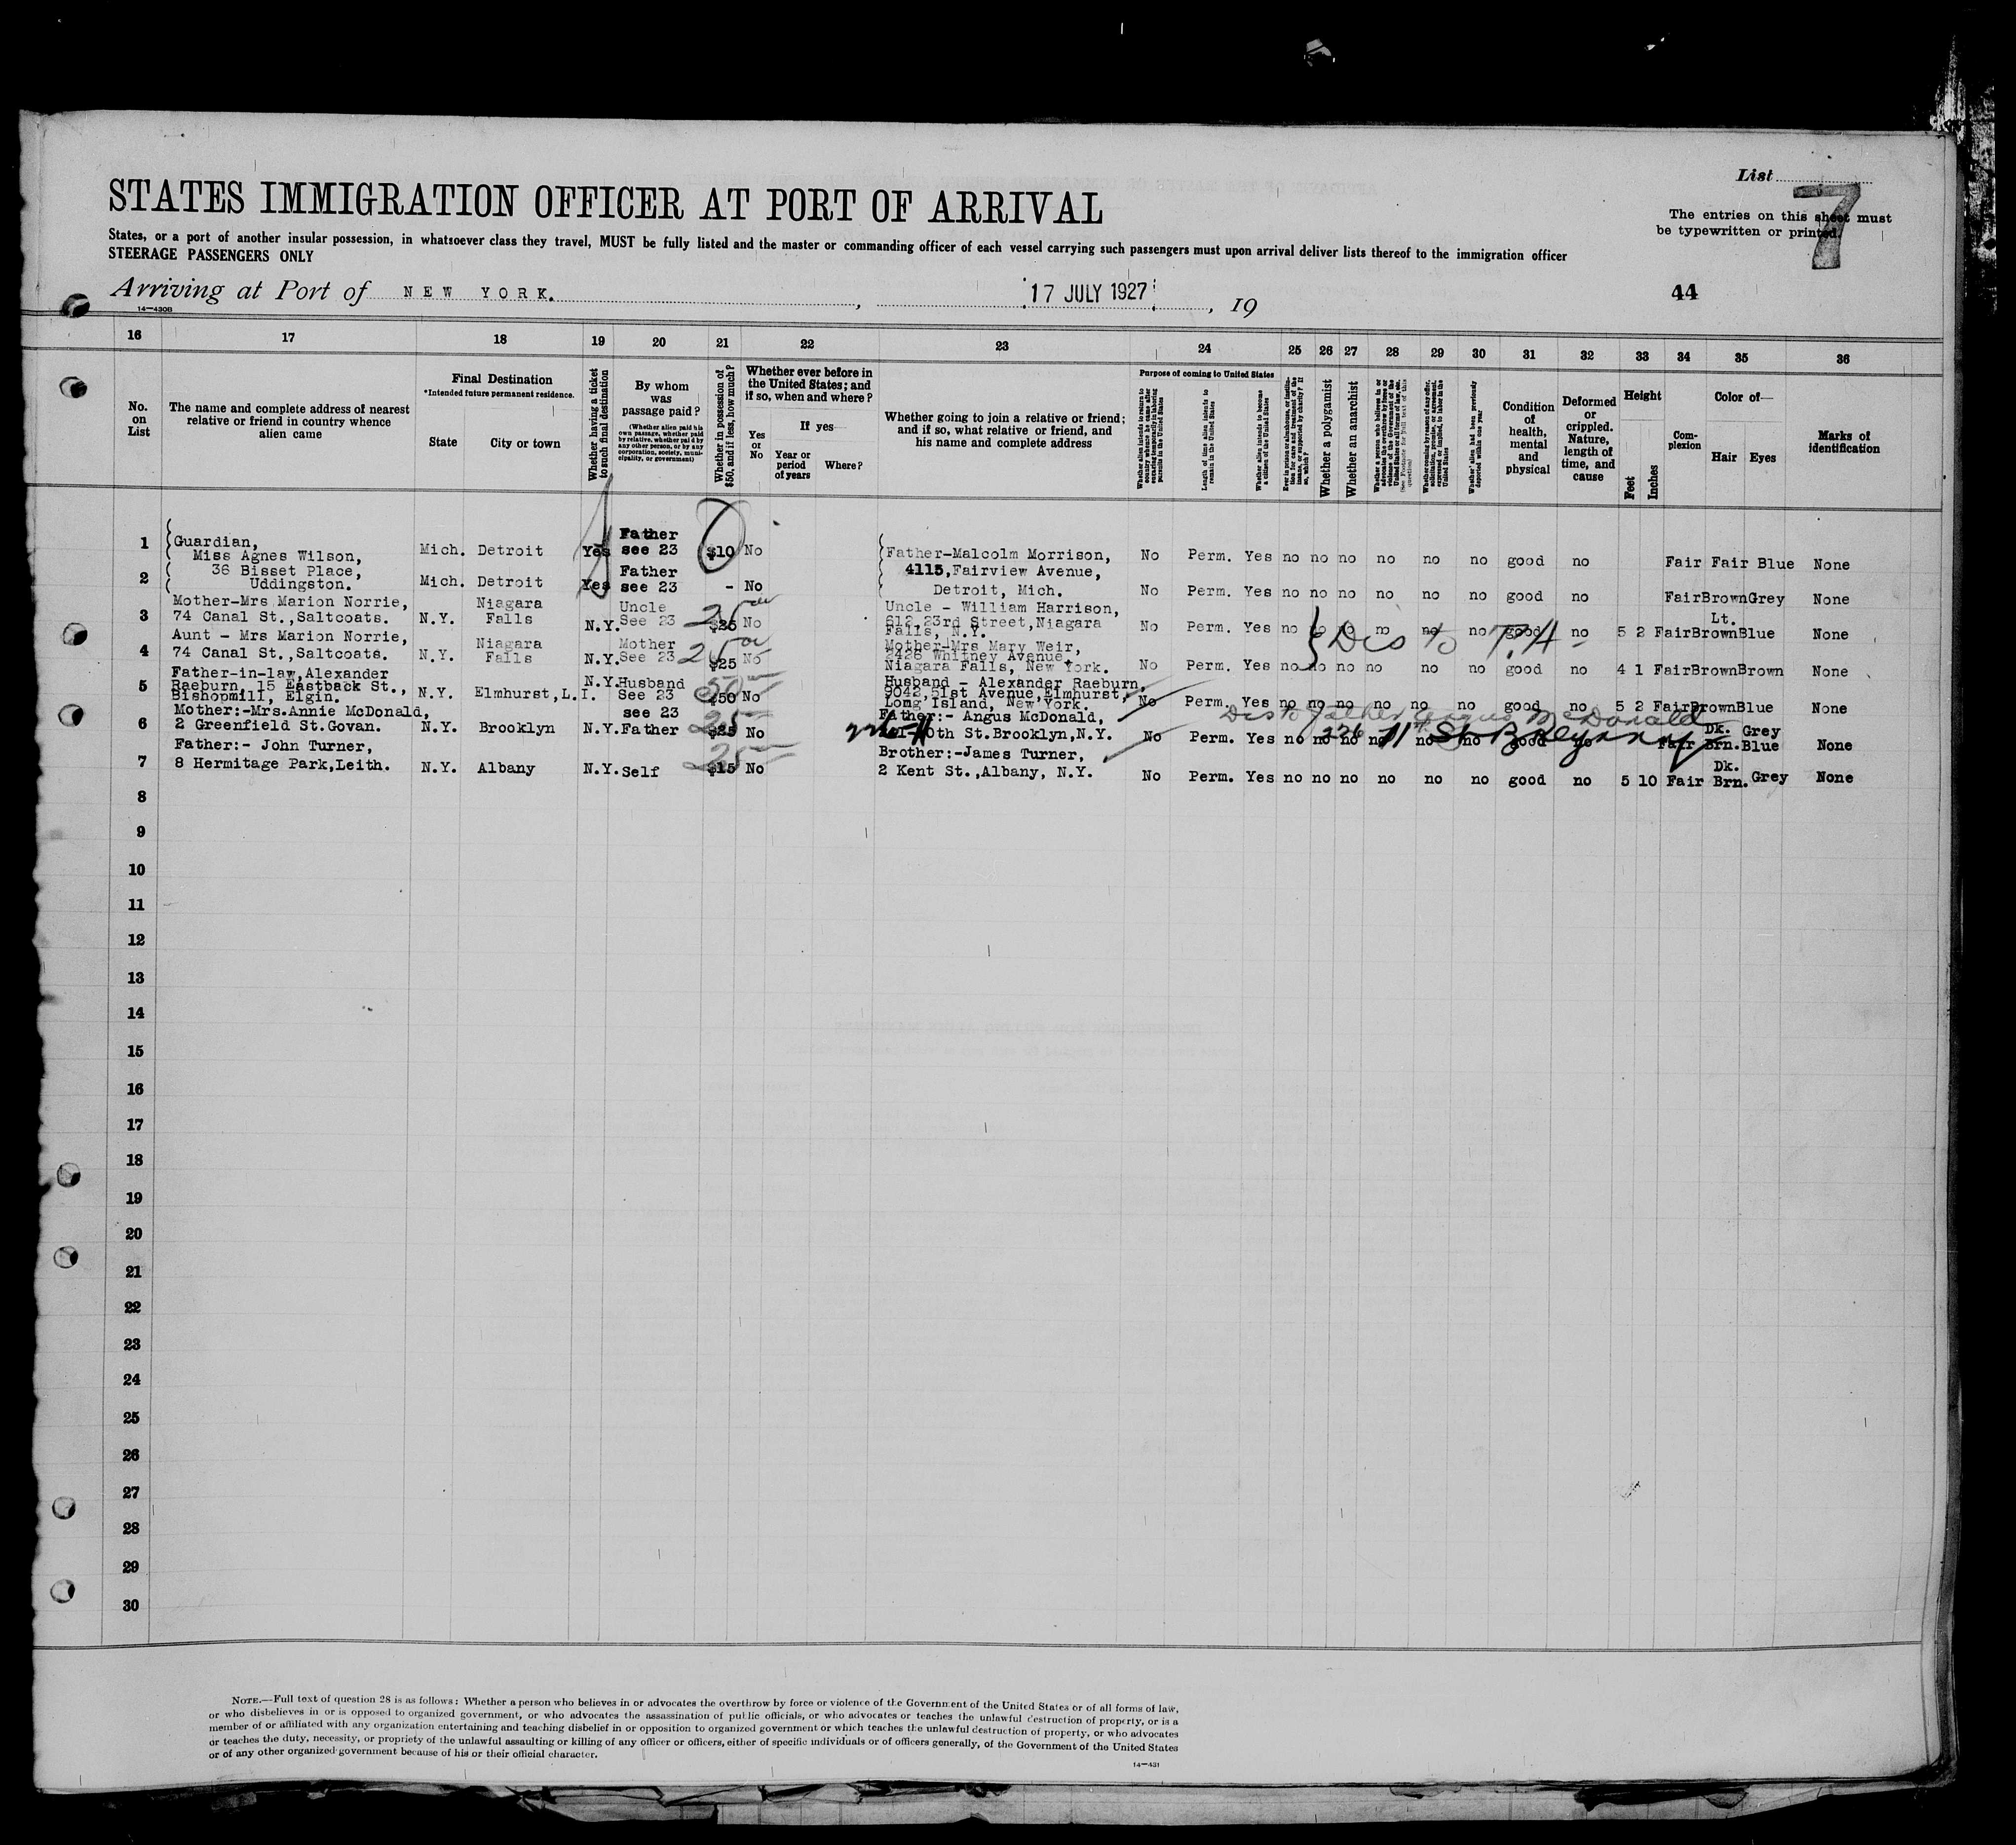 List
7
STATES IMMIGRATION OFFICER AT PORT OF ARRIVAL
The entries on this sheet must
be typewritten or printed.
States, or a port of another insular possession, in whatsoever class they travel, MUST be fully listed and the master or commanding officer of each vessel carrying such passengers must upon arrival deliver lists thereof to the immigration officer
STEERAGE PASSENGERS ONLY
Arriving at Port of NEW YORK. , 17 JULY 1927 , 19
44
14—430B
16 17 18 19 20 21 22 23 24 25 26 27 28 29 30 31 32 33 34 35 36
No. on List
The name and complete address of nearest relative or friend in country whence alien came
Final Destination
*Intended future permanent residence.
State
City or town
Whether having a ticket to such final destination
By whom was passage paid?
(Whether alien paid his own passage, whether paid by relative, whether paid by any other person, or by any corporation, society, municipality, or government)
Whether in possession of $50, and if less, how much?
Whether ever before in the United States; and if so, when and where?
Yes or No
If yes—
Year or period of years
Where?
Whether going to join a relative or friend; and if so, what relative or friend, and his name and complete address
Purpose of coming to United States
Whether alien intends to return to country whence he came after engaging temporarily in laboring pursuits in the United States
Length of time alien intends to remain in the United States
Whether alien intends to become a citizen of the United States
Ever in prison or almshouse, or institution for care and treatment of the insane, or supported by charity? If so, which?
Whether a polygamist
Whether an anarchist
Whether a person who believes in or advocates the overthrow by force or violence of the Government of the United States or all forms of law, etc. (See Footnote for full text of this question)
Whether coming by reason of any offer, solicitation, promise, or agreement, expressed or implied, to labor in the United States
Whether alien had been previously deported within one year
Condition of health, mental and physical
Deformed or crippled. Nature, length of time, and cause
Height
Feet
Inches
Complexion
Color of—
Hair
Eyes
Marks of identification
1 Guardian, Miss Agnes Wilson, Mich. Detroit Yes Father see 23 $10 No Father-Malcolm Morrison, No Perm. Yes no no no no no no good no Fair Fair Blue None
36 Bisset Place, 4115, Fairview Avenue,
2 Uddingston. Mich. Detroit Yes Father see 23 - No Detroit, Mich. No Perm. Yes no no no no no no good no Fair Brown Grey None
3 Mother-Mrs Marion Norrie, 74 Canal St.,Saltcoats. N.Y. Niagara Falls N.Y. Uncle See 23 25 No Uncle - William Harrison, 612,23rd Street,Niagara Falls, N.Y. No Perm. Yes no no no no no no good no 5 2 Fair Lt. Brown Blue None
Dis to T.H
4 Aunt - Mrs Marion Norrie, 74 Canal St.,Saltcoats. N.Y. Niagara Falls N.Y. Mother See 23 25 $25 No Mother-Mrs Mary Weir, 2426 Whitney Avenue, Niagara Falls, New York. No Perm. Yes no no no no no no good no 4 1 Fair Brown Brown None
5 Father-in-law,Alexander Raeburn, 15 Eastback St., Bishopmill, Elgin. N.Y. Elmhurst,L.I. N.Y. Husband See 23 50 $50 No Husband - Alexander Raeburn, 9042,51st Avenue,Elmhurst, Long Island, New York. No Perm. Yes no no no no no no good no 5 2 Fair Brown Blue None
Dis to father Angus McDonald
6 Mother:-Mrs.Annie McDonald, 2 Greenfield St.Govan. N.Y. Brooklyn N.Y. see 23 Father 25 $25 No Father:- Angus McDonald, St.Brooklyn,N.Y. No Perm. Yes no no no no no no good no Fair Dk. Brn. Grey Blue None
226 71st St Bklyn NY
7 Father:- John Turner, 8 Hermitage Park,Leith. N.Y. Albany N.Y. Self 25 $15 No Brother:-James Turner, 2 Kent St.,Albany, N.Y. No Perm. Yes no no no no no no good no 5 10 Fair Dk. Brn. Grey None
8
9
10
11
12
13
14
15
16
17
18
19
20
21
22
23
24
25
26
27
28
29
30
NOTE.—Full text of question 28 is as follows: Whether a person who believes in or advocates the overthrow by force or violence of the Government of the United States or of all forms of law,
or who disbelieves in or is opposed to organized government, or who advocates the assassination of public officials, or who advocates or teaches the unlawful destruction of property, or is a
member of or affiliated with any organization entertaining and teaching disbelief in or opposition to organized government or which teaches the unlawful destruction of property, or who advocates
or teaches the duty, necessity, or propriety of the unlawful assaulting or killing of any officer or officers, either of specific individuals or of officers generally, of the Government of the United States
or of any other organized government because of his or their official character.
14—431